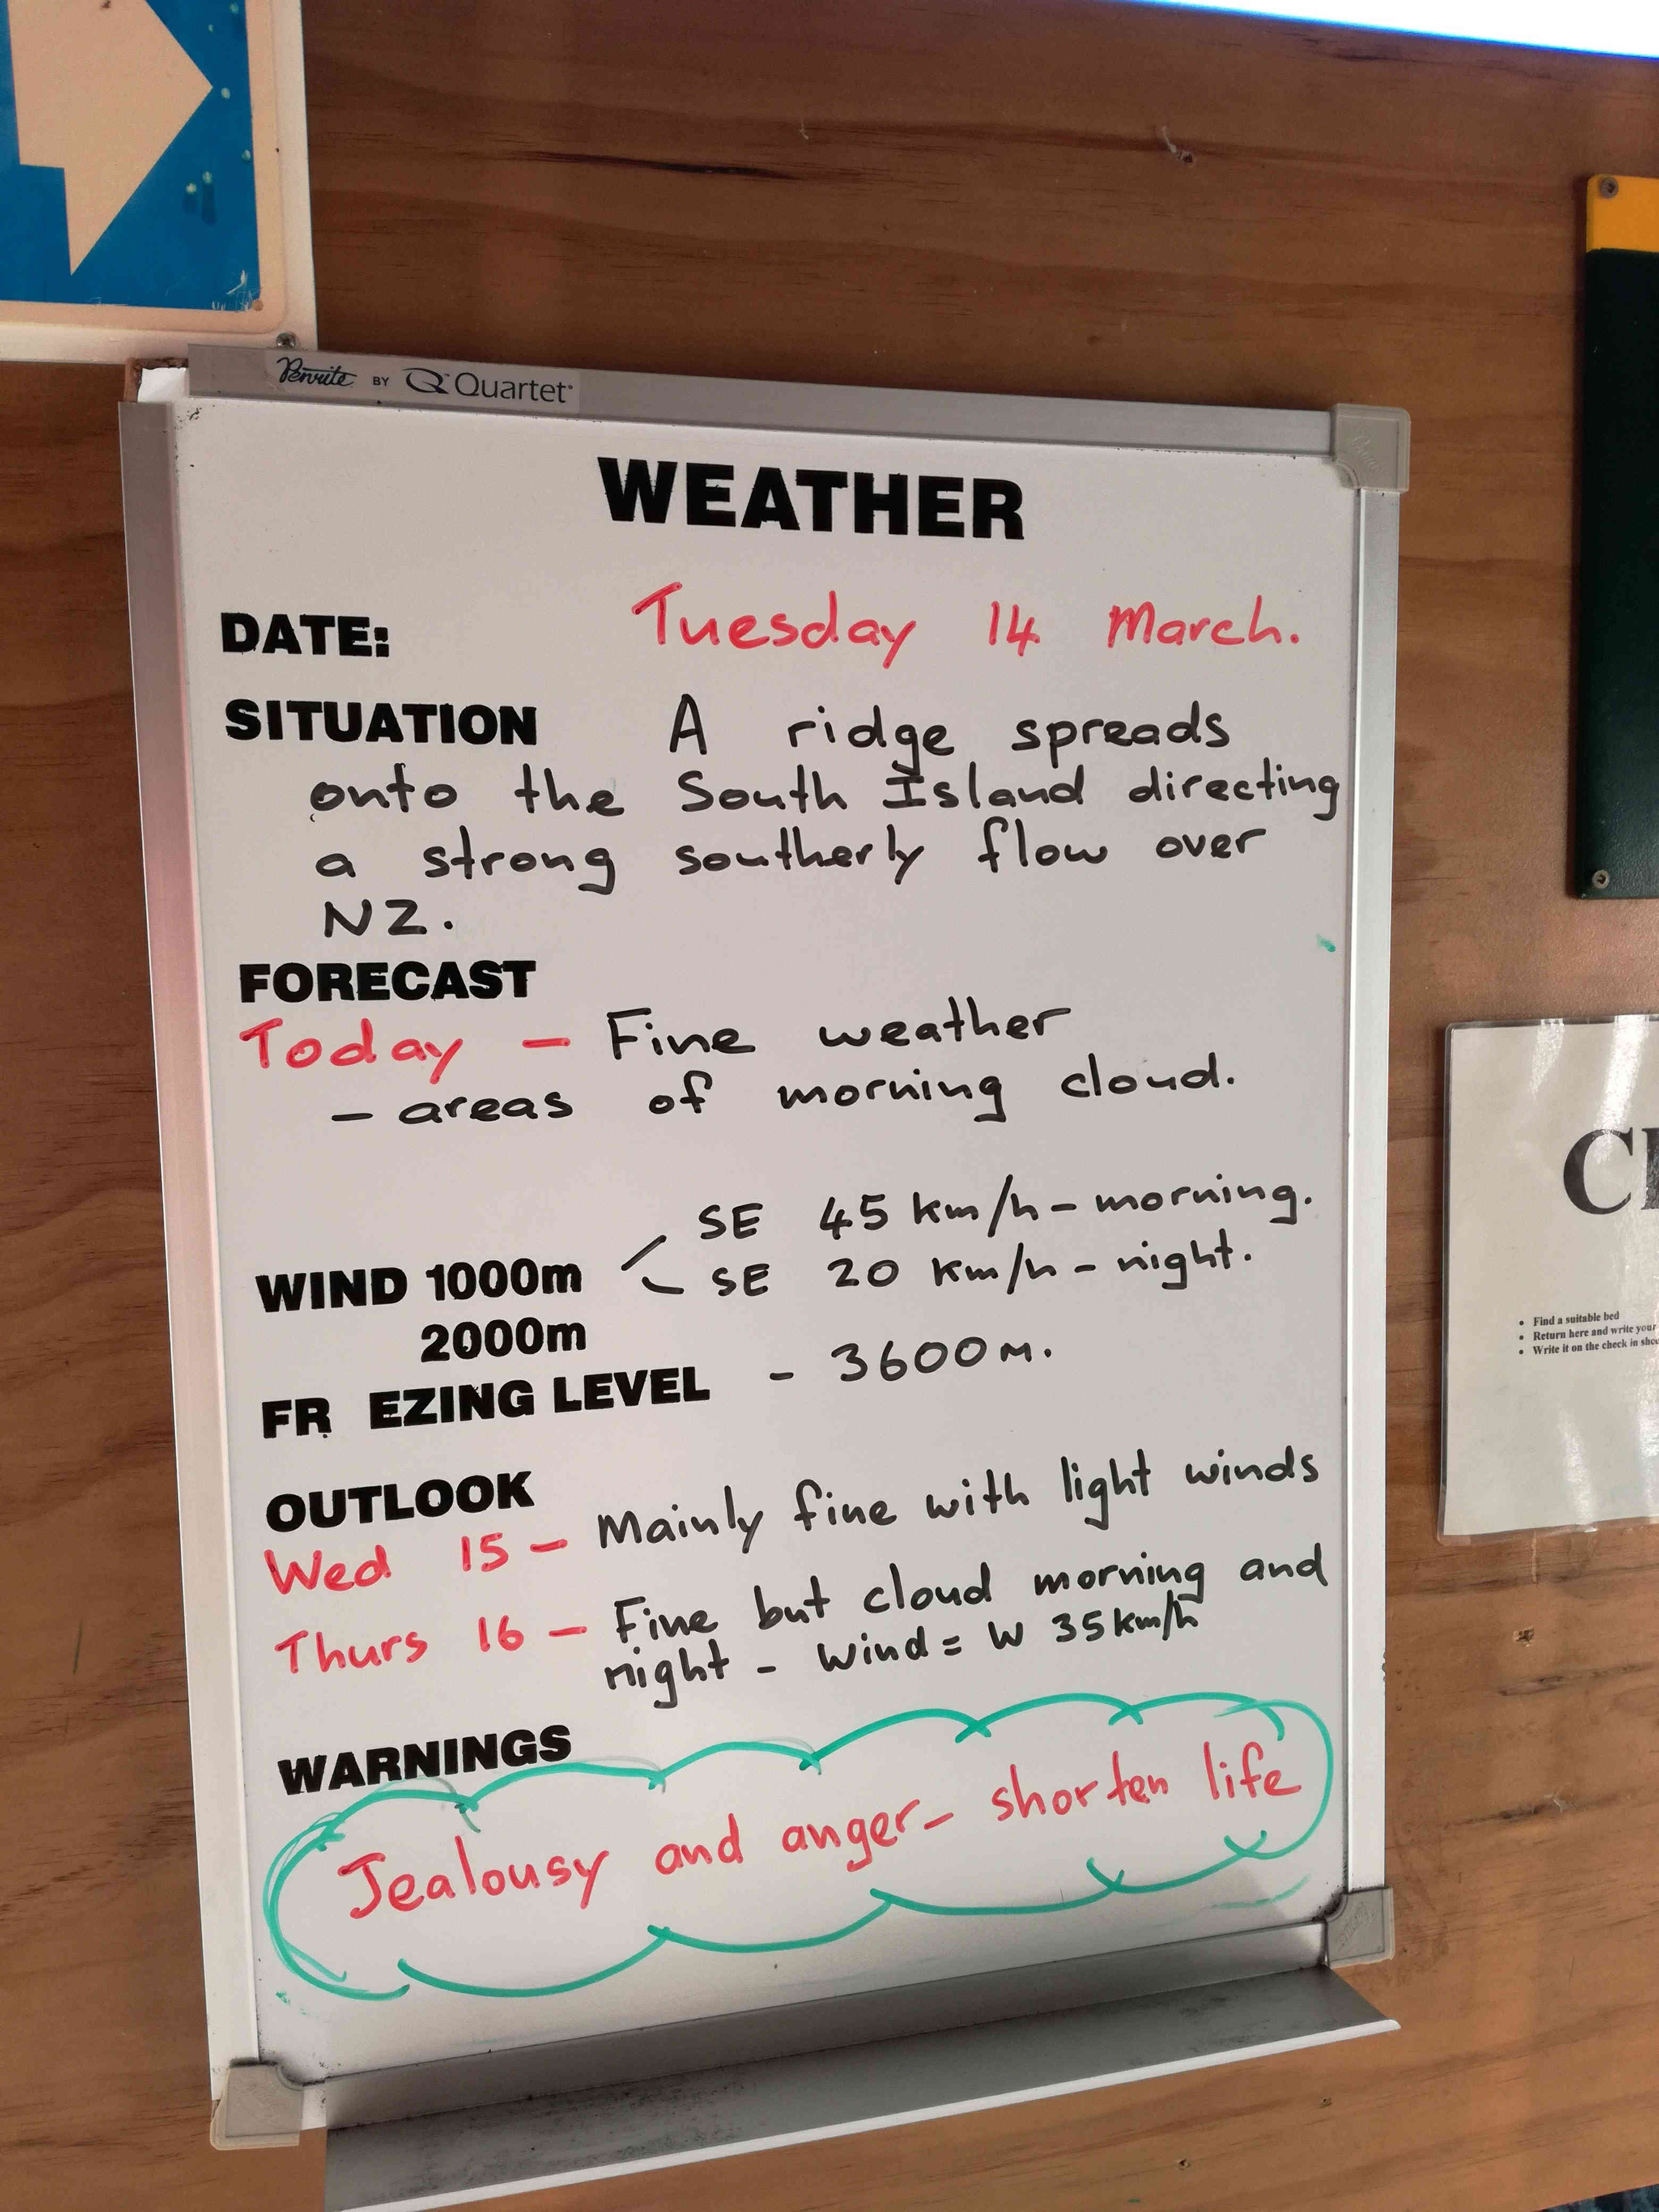 Penrite BY Quartet
WEATHER
DATE: Tuesday 14 March.
SITUATION A ridge spreads
onto the South Island directing
a strong southerly flow over
NZ.
FORECAST
Today - Fine weather
- areas of morning cloud.
SE 45 km/h - morning.
WIND 1000m SE 20 km/h - night.
2000m
FR EZING LEVEL - 3600m.
OUTLOOK
Wed 15 - Mainly fine with light winds
Thurs 16 - Fine but cloud morning and
night - Wind = W 35 km/h
WARNINGS
Jealousy and anger - shorten life
Find a suitable bed
Return here and write your
Write it on the check in